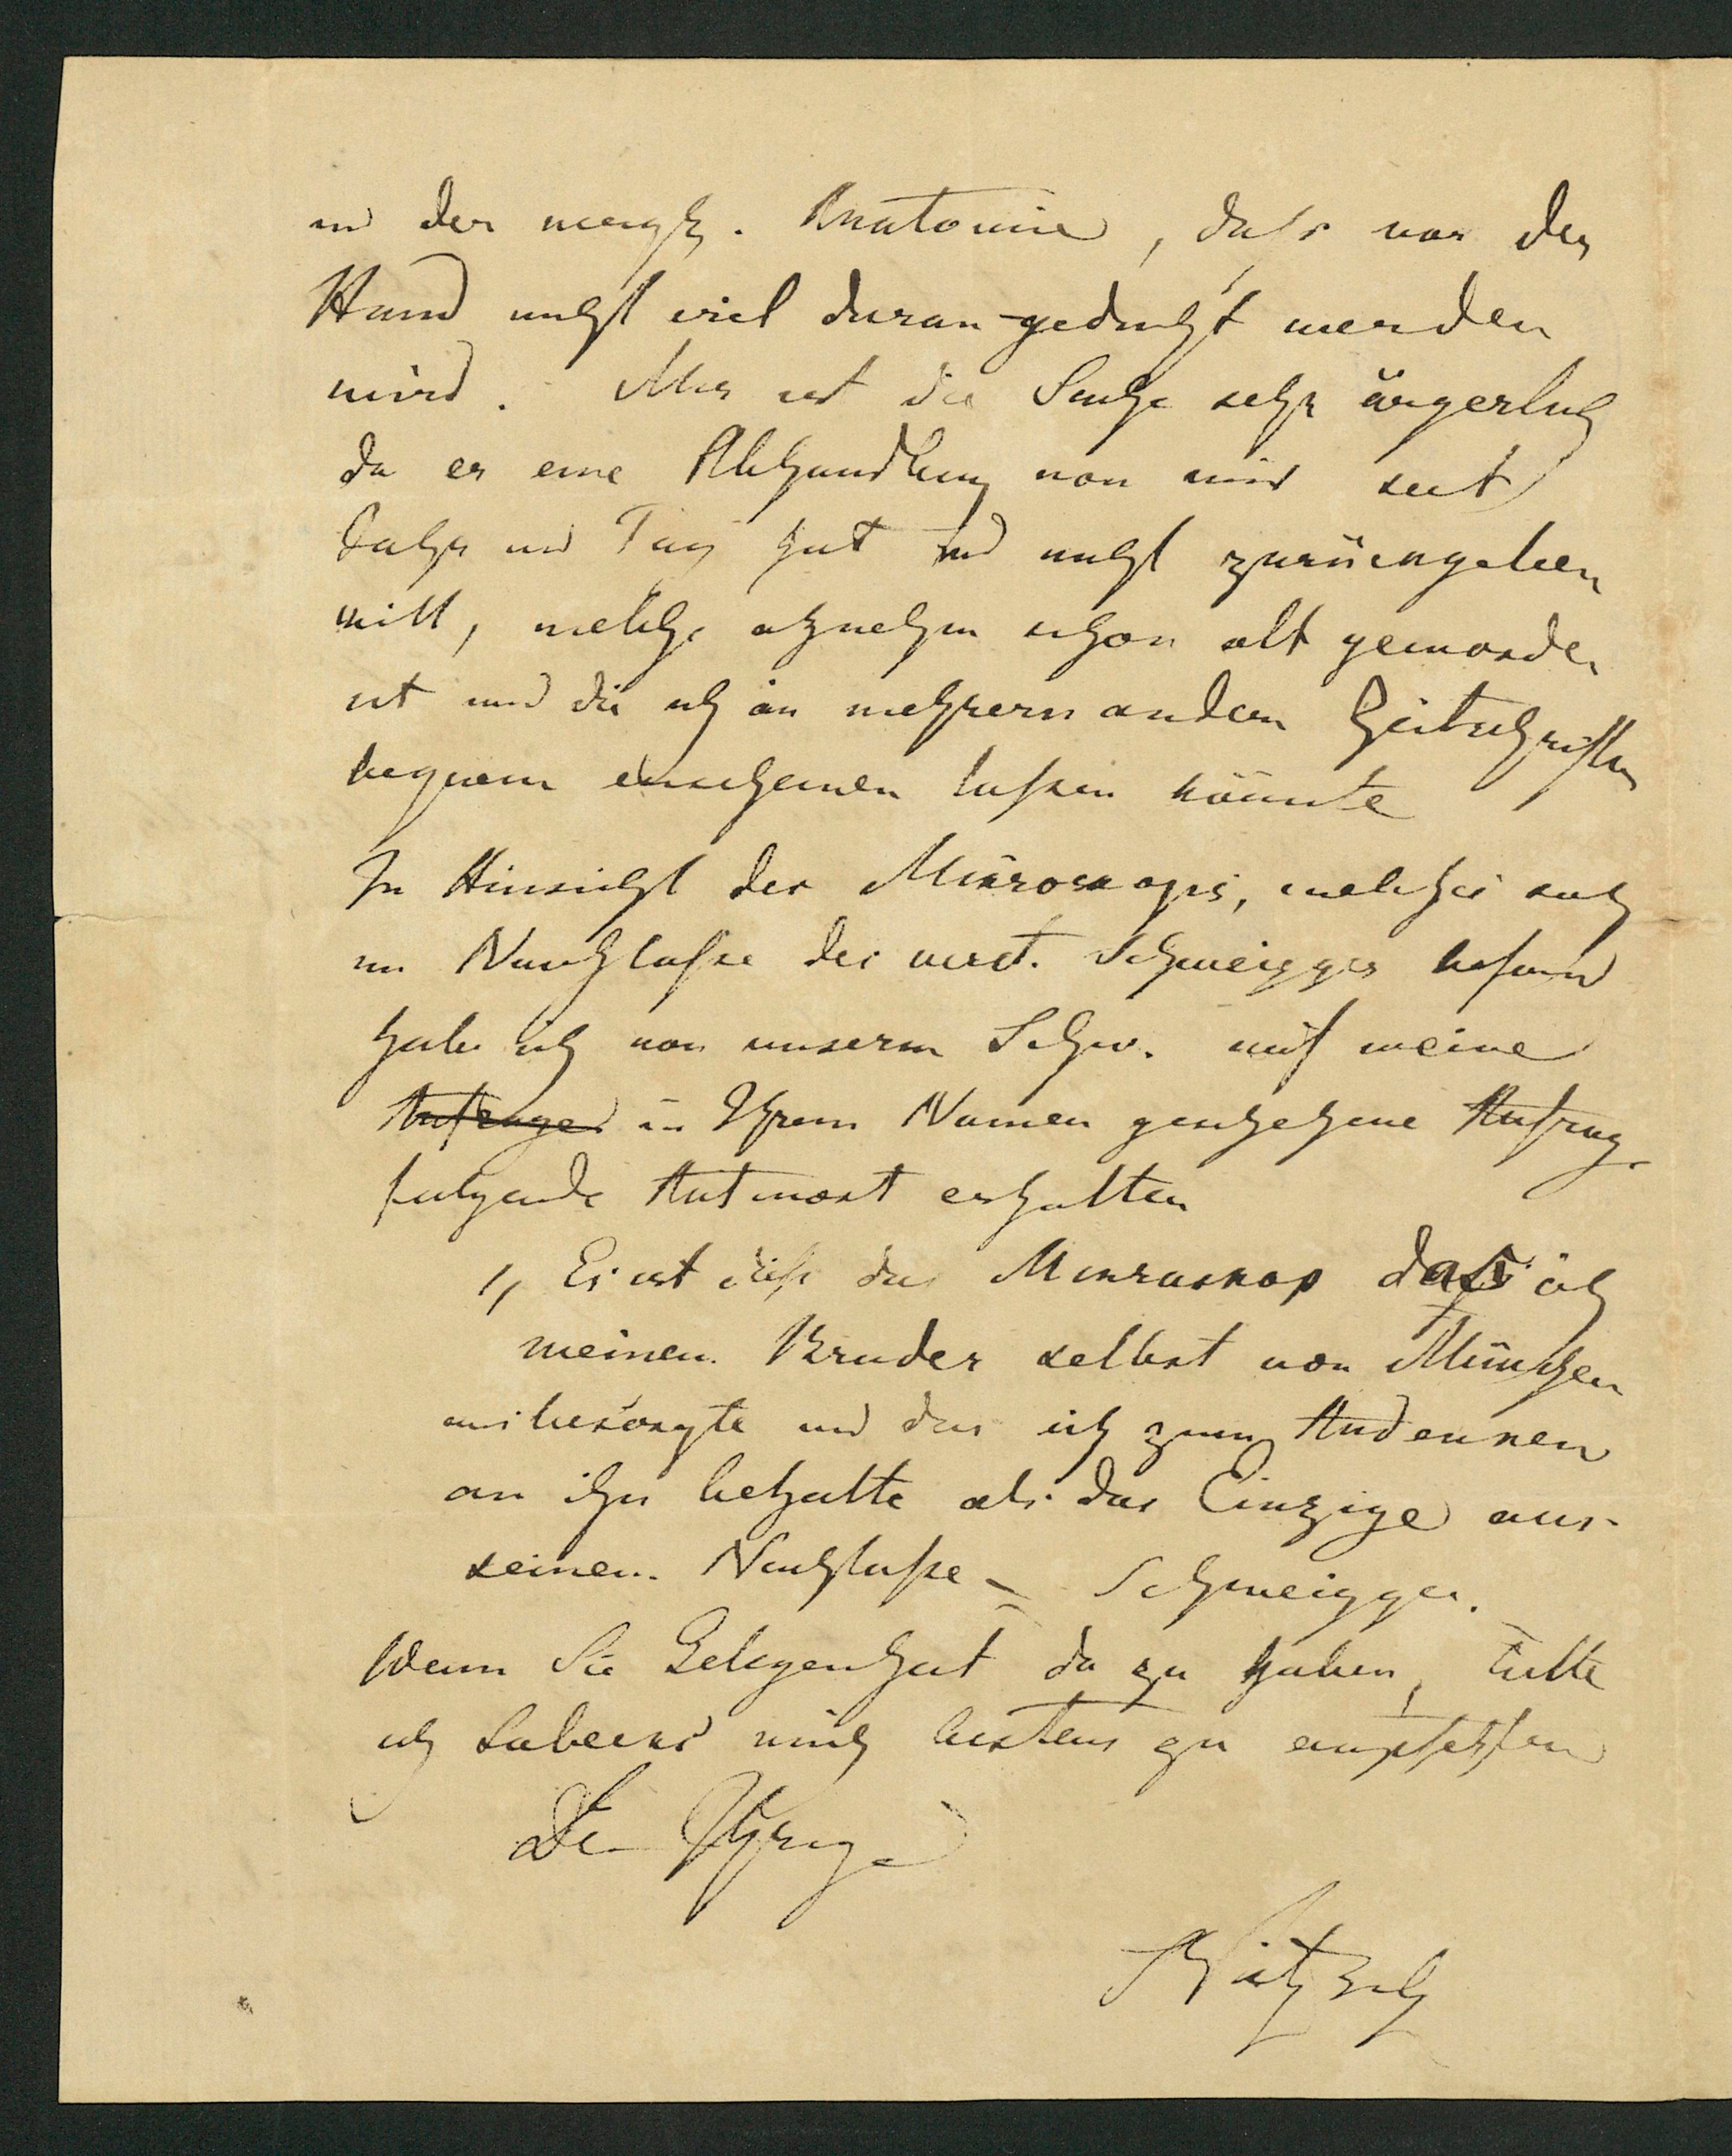 in der mensch. Anatomie, dass vor der
Hand nicht viel daran gedacht werden
wird. Mir ist die Sache sehr ärgerlich
da er eine Abhandlung von mir seit
Jahr und Tag hat und nicht zurückgeben
will, welche ohnehin schon alt geworden
ist und die ich in mehrern andern Zeitschriften
bequem erscheinen lassen könnte
In Hinsicht des Mikroskops, welches sich
im Nachlasse des verst. Schweigger befand
habe ich von unserm Schw. auf meine
Anfrage in Ihrem Namen geschehene Anfrage
folgende Antwort erhalten
„Es ist diess das Mikroskop das ich
meinem Bruder selbst von München
aus besorgte und das ich zum Andenken
an ihn behalte als das Einzige aus
seinem Nachlasse – Schweigger.
Wenn Sie Gelegenheit da zu haben, bitte
ich mich bestens zu empfehlen
Der Ihrige
Nitzsch